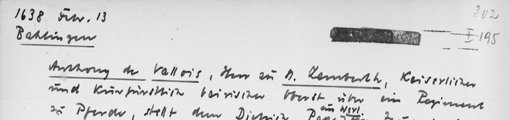 1638 Febr. 13
302
Bahlingen
I 195
Anthony de Vallois, Herr zu A. Lamberth, Kaiserlicher
und Kurfürstlich bairischer Oberst über ein Regiment
zu Pferde, stellt dem Dietrich